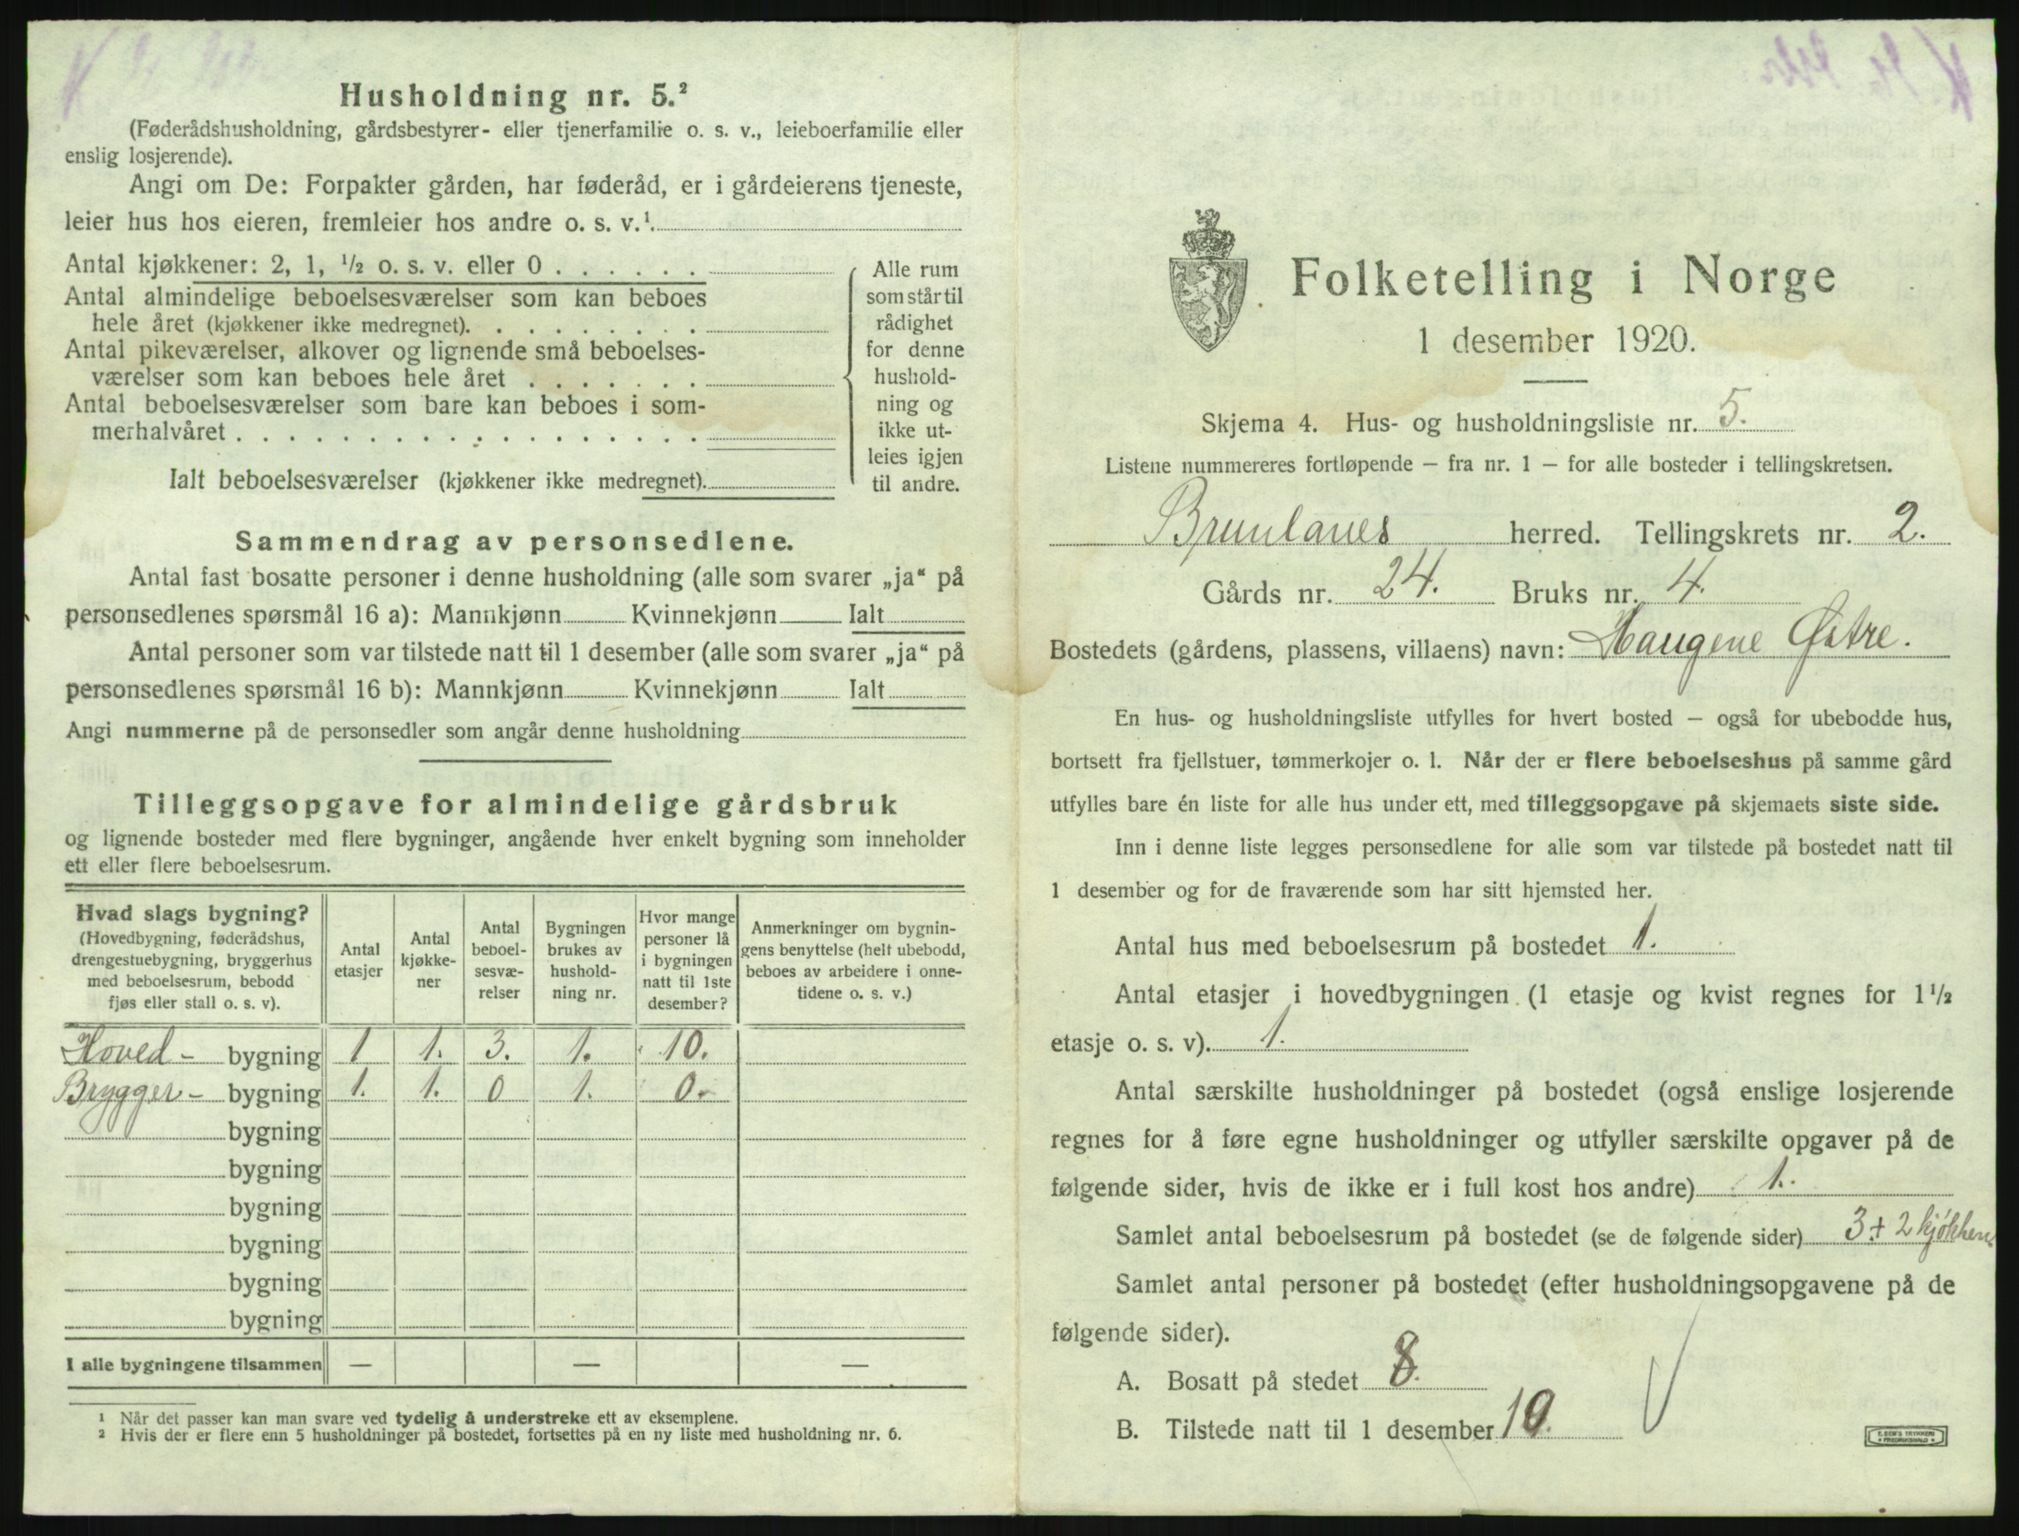 Husholdning nr. 5.²
(Føderådshusholdning, gårdsbestyrer- eller tjenerfamilie o. s. v., leieboerfamilie eller
enslig losjerende).
Angi om De: Forpakter gården, har føderåd, er i gårdeierens tjeneste,
leier hus hos eieren, fremleier hos andre o. s. v.¹
Antal kjøkkener: 2, 1, ½ o. s. v. eller 0 . . . . . .
Antal almindelige beboelsesværelser som kan beboes
hele året (kjøkkener ikke medregnet). . . . . . . . .
Antal pikeværelser, alkover og lignende små beboelses-
værelser som kan beboes hele året . . . . . . .
Antal beboelsesværelser som bare kan beboes i som-
merhalvåret . . . . . . . . . . . . . . . . .
Ialt beboelsesværelser (kjøkkener ikke medregnet).
Alle rum
som står til
rådighet
for denne
hushold-
ning og
ikke ut-
leies igjen
til andre.
Sammendrag av personsedlene.
Antal fast bosatte personer i denne husholdning (alle som svarer „ja“ på
personsedlenes spørsmål 16 a): Mannkjønn Kvinnekjønn Ialt
Antal personer som var tilstede natt til 1 desember (alle som svarer „ja“ på
personsedlenes spørsmål 16 b): Mannkjønn Kvinnekjønn Ialt
Angi nummerne på de personsedler som angår denne husholdning
Tilleggsopgave for almindelige gårdsbruk
og lignende bosteder med flere bygninger, angående hver enkelt bygning som inneholder
ett eller flere beboelsesrum.
Hvad slags bygning?
(Hovedbygning, føderådshus,
drengestuebygning, bryggerhus
med beboelsesrum, bebodd
fjøs eller stall o. s. v).
Antal
etasjer
Antal
kjøkke-
ner
Antal
beboel-
sesvæ-
relser
Bygningen
brukes av
hushold-
ning nr.
Hvor mange
personer lå
i bygningen
natt til 1ste
desember?
Anmerkninger om bygnin-
gens benyttelse (helt ubebodd,
beboes av arbeidere i onne-
tidene o. s. v.)
Hoved- bygning 1 1. 3. 1. 10.
Brygger- bygning 1. 1. 0 1. 0.-
bygning
bygning
bygning
bygning
bygning
bygning
I alle bygningene tilsammen — — —
¹ Når det passer kan man svare ved tydelig å understreke ett av eksemplene.
² Hvis der er flere enn 5 husholdninger på bostedet, fortsettes på en ny liste med husholdning nr. 6.
Folketelling i Norge
1 desember 1920.
Skjema 4. Hus- og husholdningsliste nr. 5.
Listene nummereres fortløpende — fra nr. 1 — for alle bosteder i tellingskretsen.
Brunlanes herred. Tellingskrets nr. 2.
Gårds nr. 24. Bruks nr. 4.
Bostedets (gårdens, plassens, villaens) navn: Haugene Østre.
En hus- og husholdningsliste utfylles for hvert bosted — også for ubebodde hus,
bortsett fra fjellstuer, tømmerkojer o. l. Når der er flere beboelseshus på samme gård
utfylles bare én liste for alle hus under ett, med tilleggsopgave på skjemaets siste side.
Inn i denne liste legges personsedlene for alle som var tilstede på bostedet natt til
1 desember og for de fraværende som har sitt hjemsted her.
Antal hus med beboelsesrum på bostedet 1.
Antal etasjer i hovedbygningen (1 etasje og kvist regnes for 1½
etasje o. s. v). 1.
Antal særskilte husholdninger på bostedet (også enslige losjerende
regnes for å føre egne husholdninger og utfyller særskilte opgaver på de
følgende sider, hvis de ikke er i full kost hos andre) 1.
Samlet antal beboelsesrum på bostedet (se de følgende sider) 3 + 2 kjøkken
Samlet antal personer på bostedet (efter husholdningsopgavene på de
følgende sider).
A. Bosatt på stedet 8.
B. Tilstede natt til 1 desember 10.